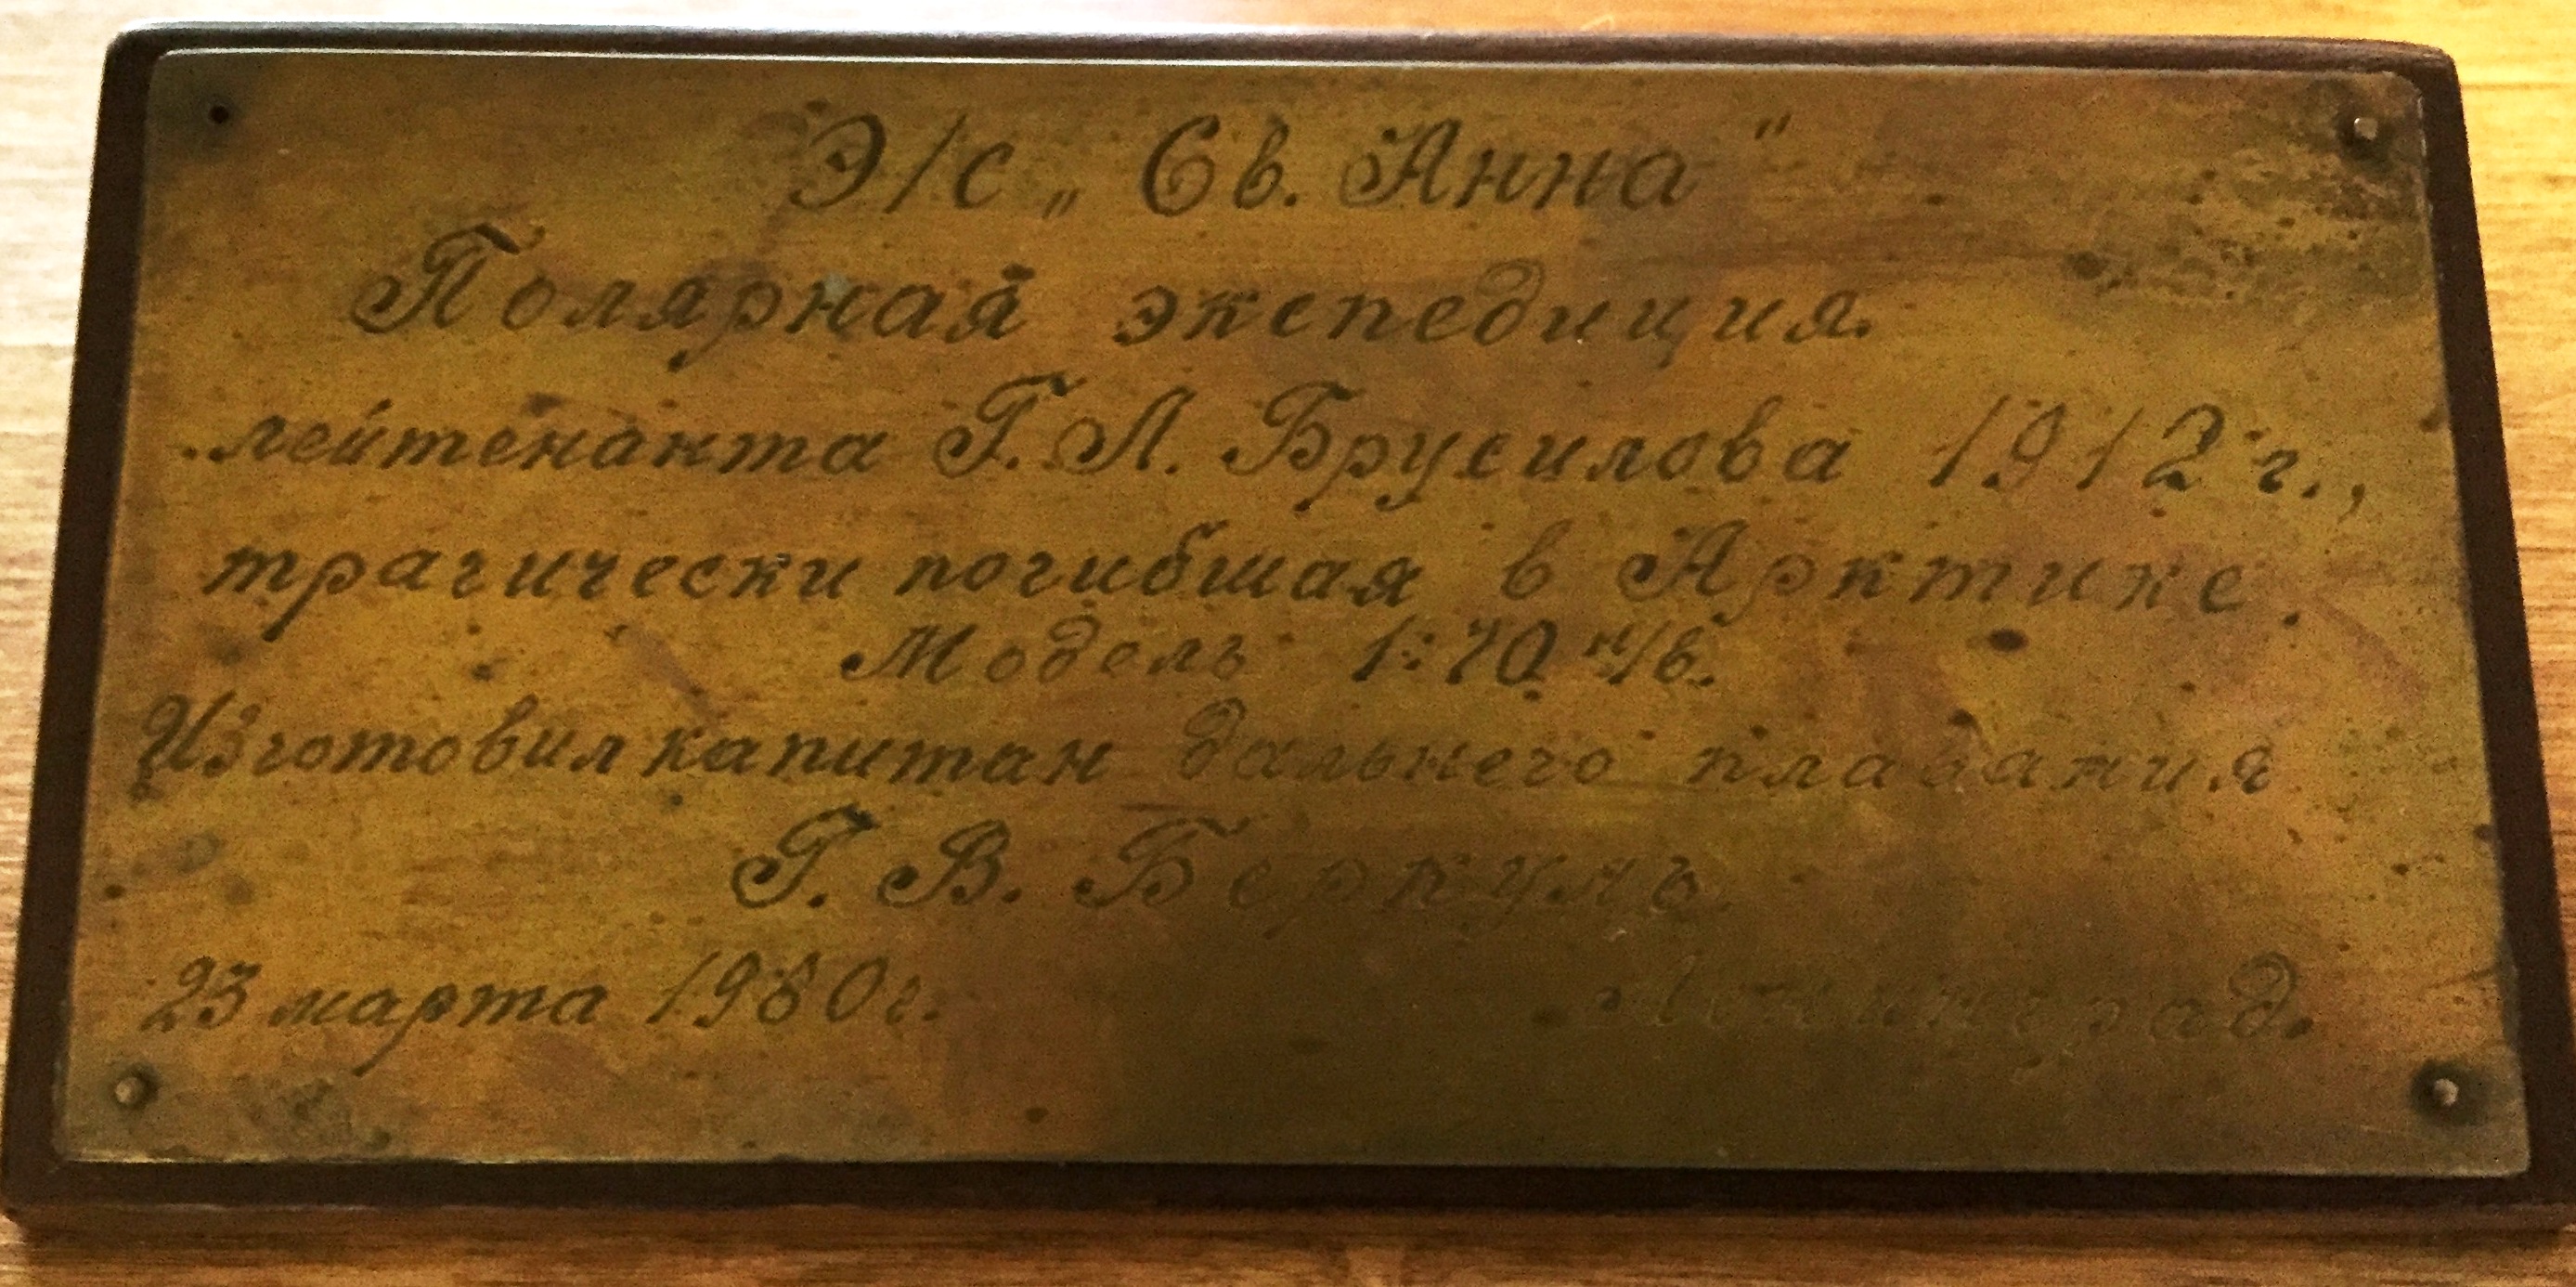 Э/с „Св. Анна"
Полярная экспедиция
лейтенанта Г. Л. Брусилова 1912 г.,
трагически погибшая в Арктике.
Модель 1:70 н/в.
Изготовил капитан дальнего плавания
Г. В. Беркуль
23 марта 1980г. Ленинград.